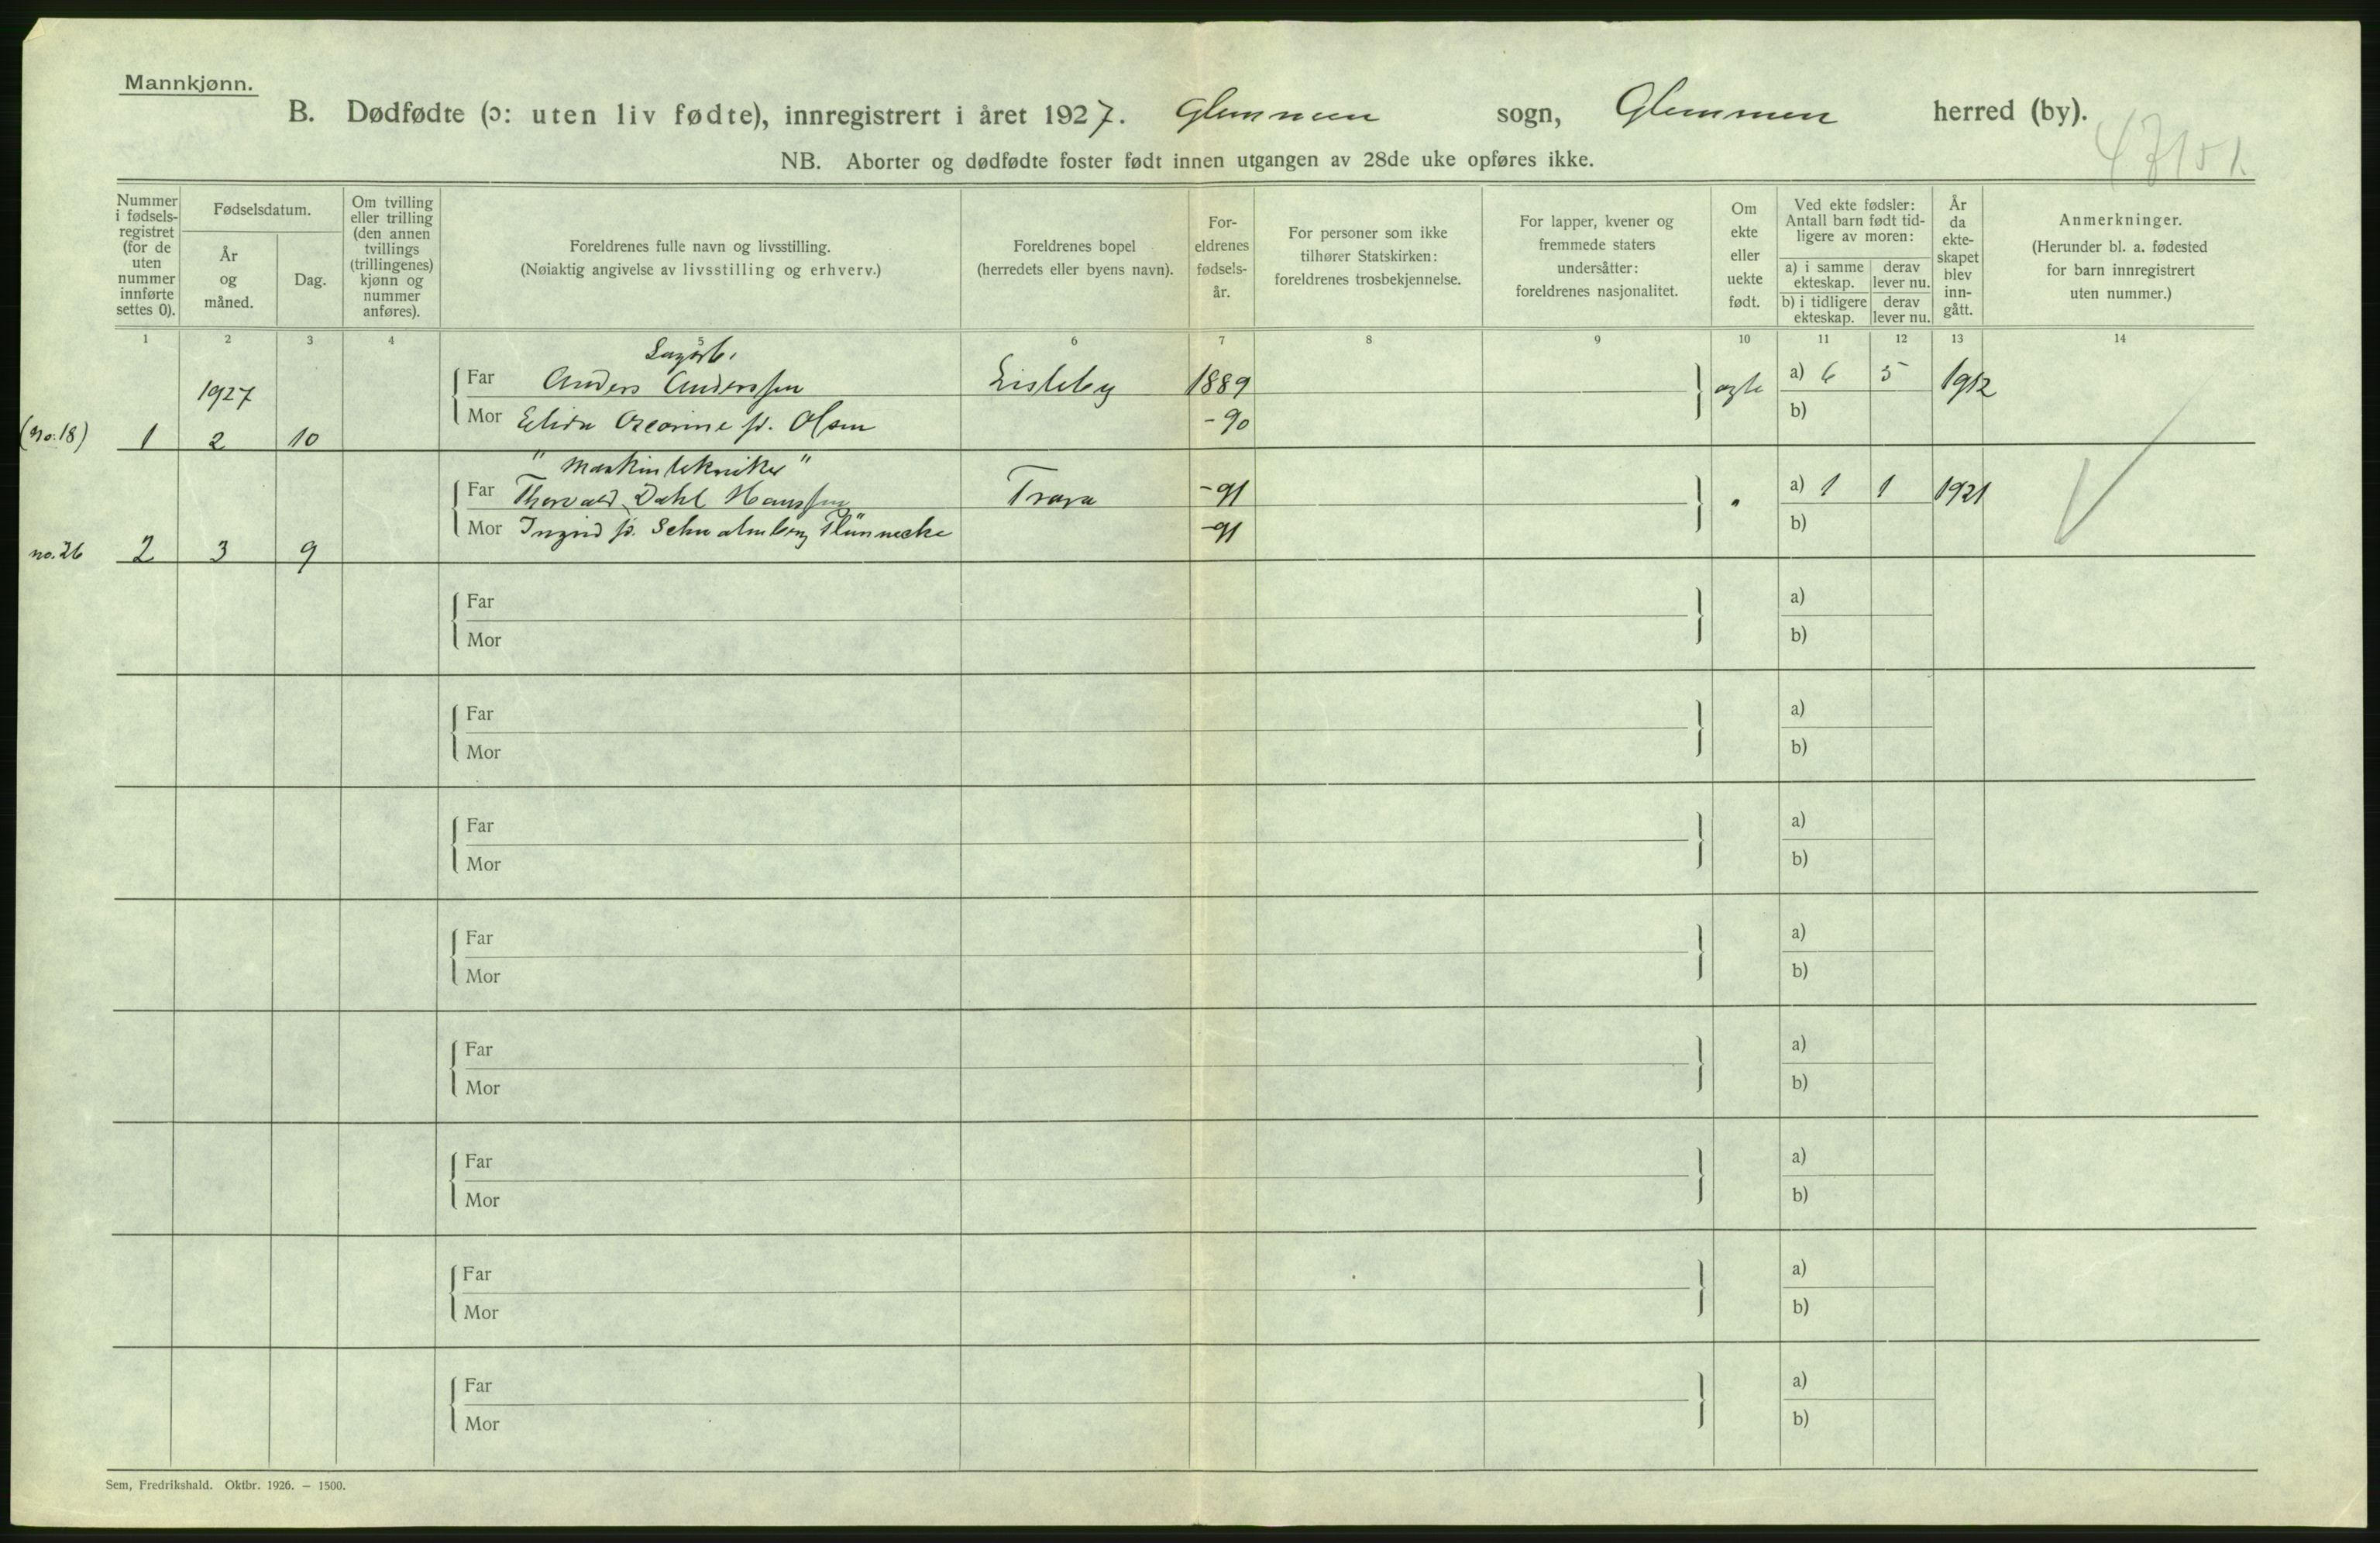 Mannkjønn.
B. Dødfødte (ɔ: uten liv fødte), innregistrert i året 1927. Glemmen sogn, Glemmen herred (by).
NB. Aborter og dødfødte foster født innen utgangen av 28de uke opføres ikke.
Nummer i fødsels-registret (for de uten nummer innførte settes 0).
Fødselsdatum.
År og måned.
Dag.
Om tvilling eller trilling (den annen tvillings (trillingenes) kjønn og nummer anføres).
Foreldrenes fulle navn og livsstilling.
(Nøiaktig angivelse av livsstilling og erhverv.)
Foreldrenes bopel
(herredets eller byens navn).
For-eldrenes fødsels-år.
For personer som ikke tilhører Statskirken: foreldrenes trosbekjennelse.
For lapper, kvener og fremmede staters undersåtter: foreldrenes nasjonalitet.
Om ekte eller uekte født.
Ved ekte fødsler: Antall barn født tid-ligere av moren:
a) i samme ekteskap.
derav lever nu.
b) i tidligere ekteskap.
derav lever nu.
År da ekte-skapet blev inn-gått.
Anmerkninger.
(Herunder bl. a. fødested for barn innregistrert uten nummer.)
1 2 3 4 5 6 7 8 9 10 11 12 13 14
1927
Far Anders Anderssen 1889 a) 6 5 1912
Mor Olsen -90 b)
(no. 18) 1 2 10
" Maskintekniker "
Far Thorvald Dahl Hanssen Trara -91 " a) 1 1 1921
Mor Ingrid f. -91 b)
no. 26 2 3 9
Far a)
Mor b)
Far a)
Mor b)
Far a)
Mor b)
Far a)
Mor b)
Far a)
Mor b)
Far a)
Mor b)
Far a)
Mor b)
Far a)
Mor b)
Sem, Fredrikshald. Oktbr. 1926. – 1500.